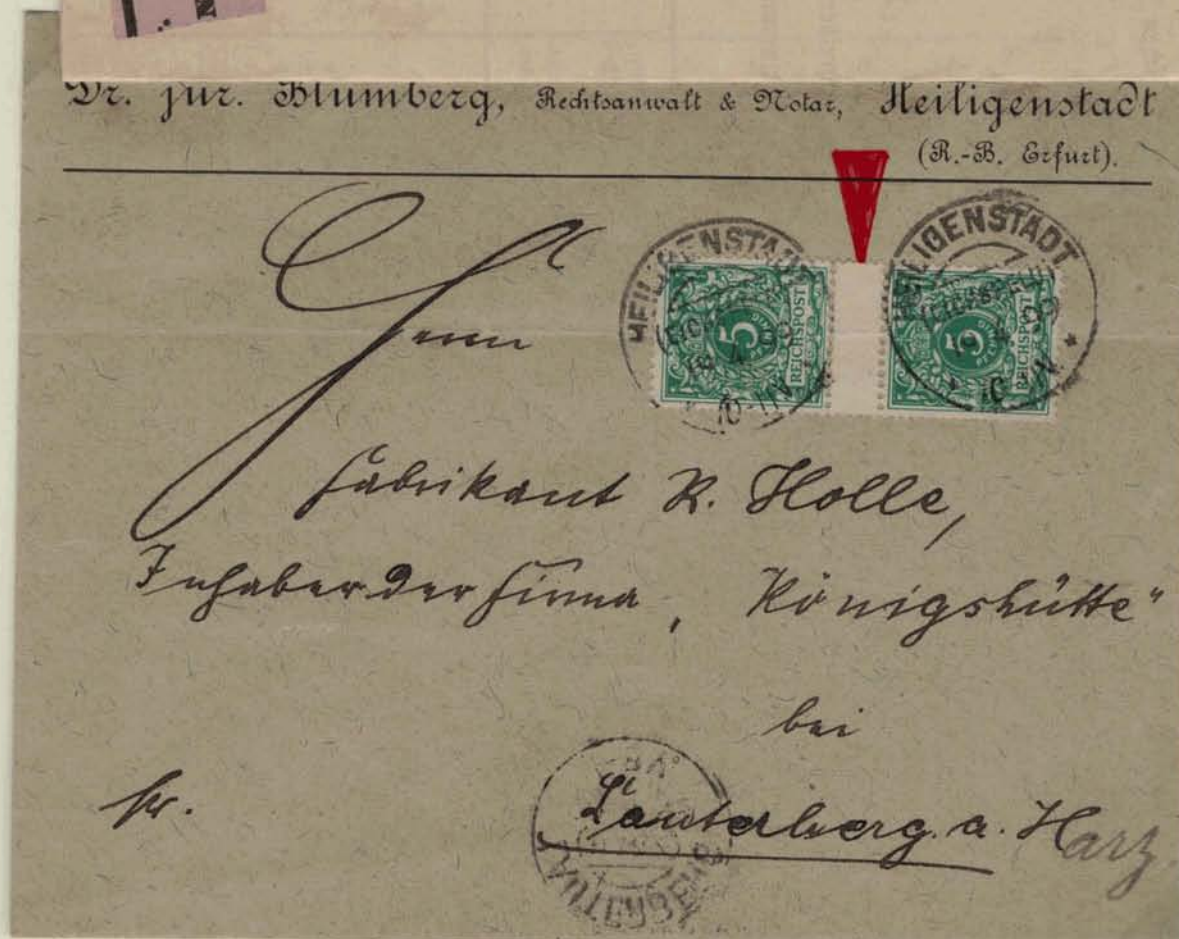 Dr. jur. Blumberg, Rechtsanwalt & Notar, Heiligenstadt
(R.-B. Erfurt).
HEILIGENSTADT
(EICHSFELD)
5
REICHSPOST
HEILIGENSTADT
(EICHSFELD)
5
REICHSPOST
Herrn
Fabrikant K. Holle,
Inhaber der Firma „Königshütte“
bei
fr.
Lauterberg a. Harz